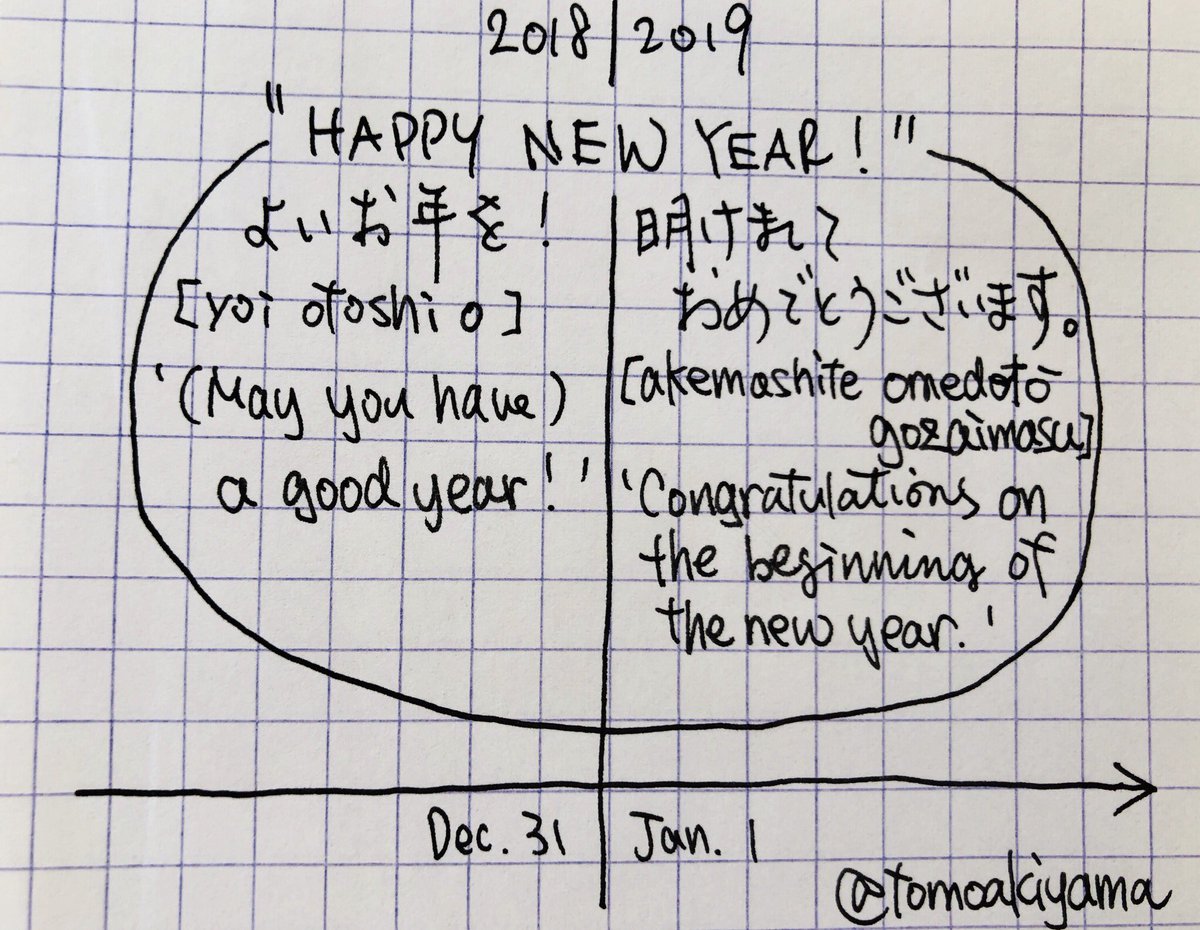 2018 | 2019
"HAPPY NEW YEAR!"
よいお年を!
[yoi otoshi o]
'(May you have)
a good year!'
明けまして
おめでとうございます。
[akemashite omedotō
gozaimasu]
'Congratulations on
the beginning of
the new year.'
Dec. 31
Jan. 1
@tomoakiyama